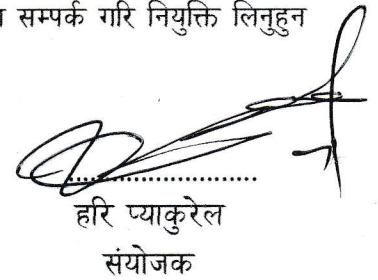 सम्पर्क गरि नियुक्ति लिनुहुन
........................
हरि प्याकुरेल
संयोजक